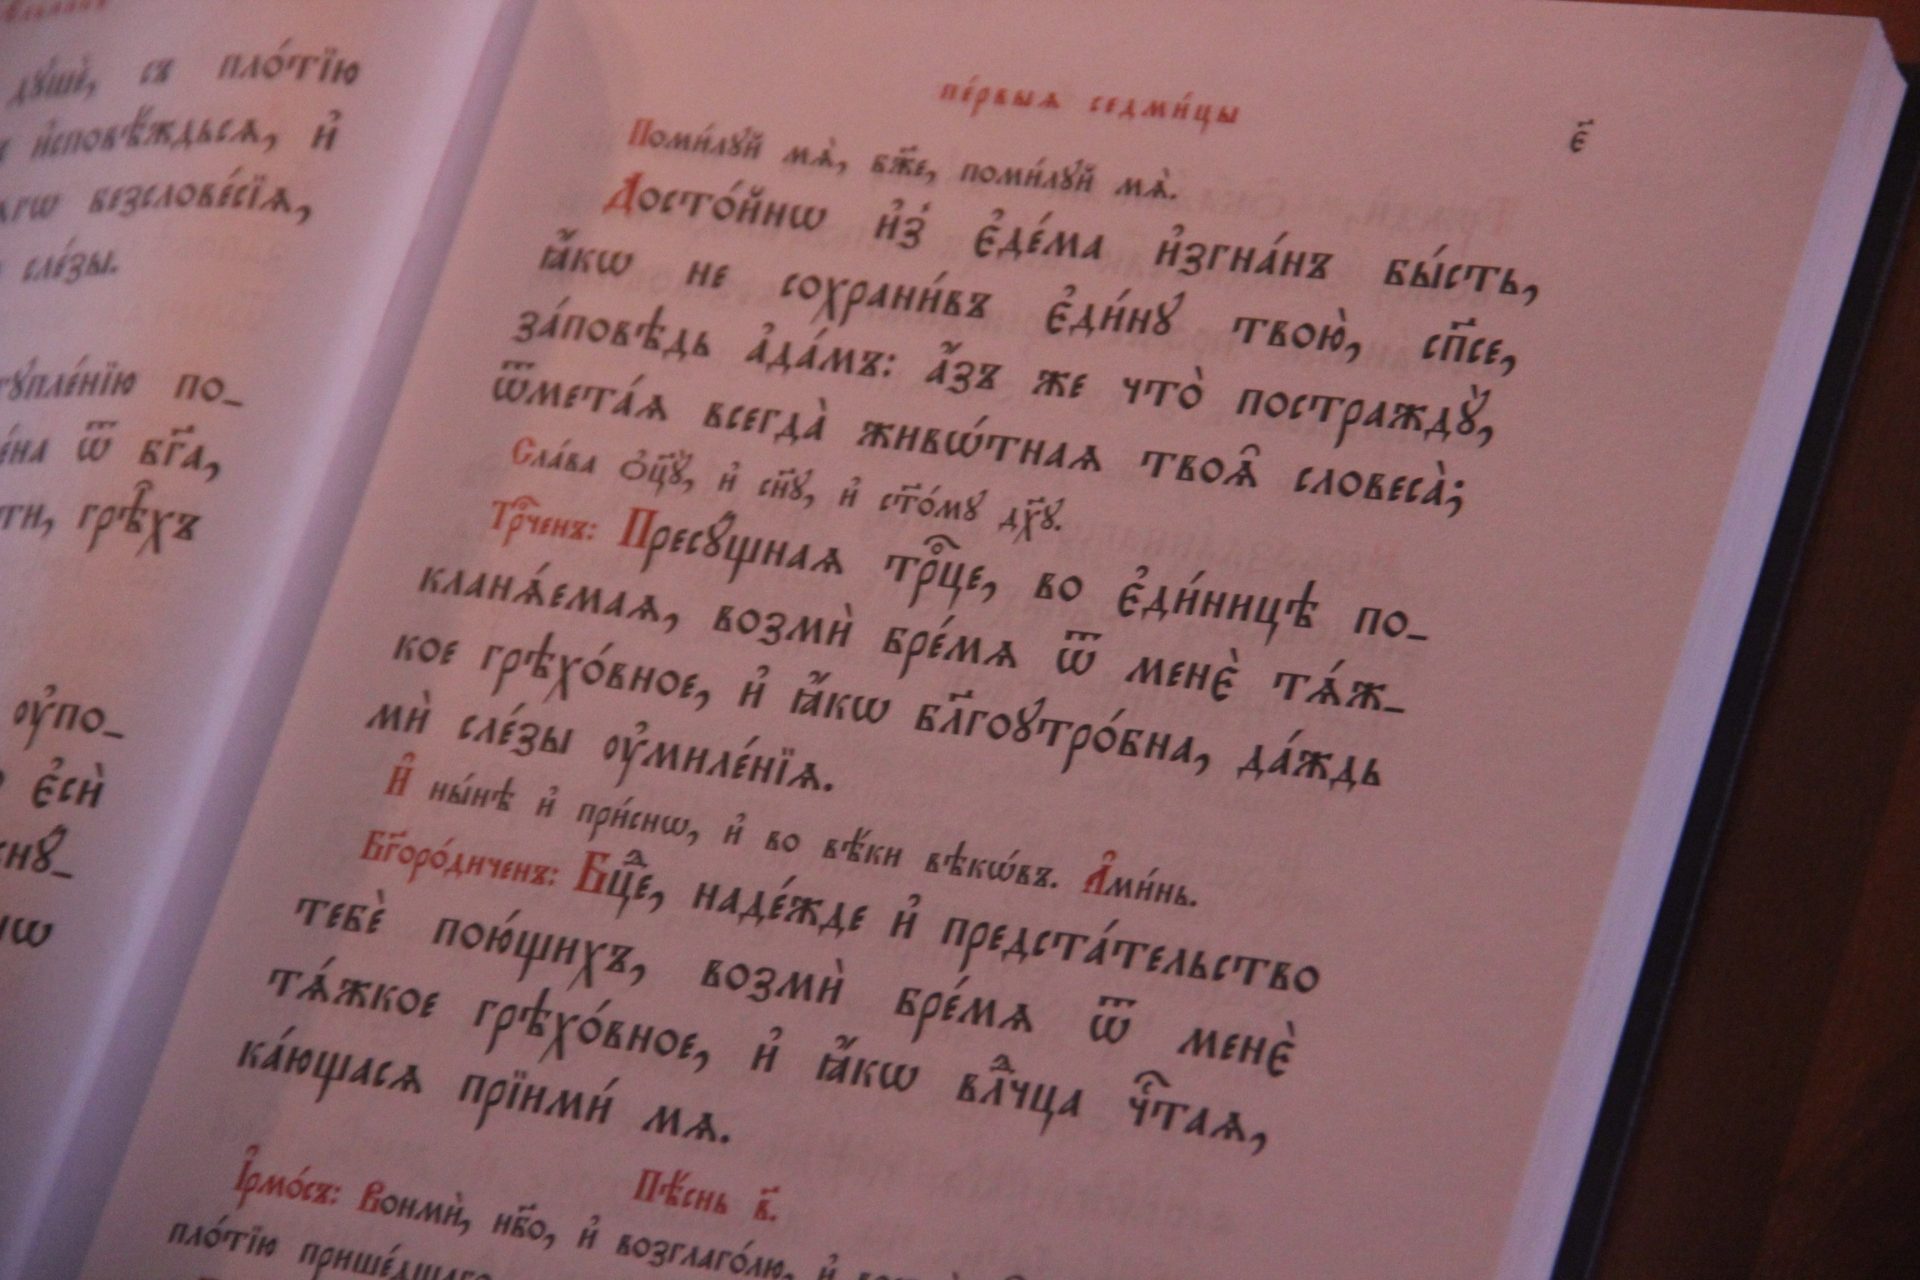 дꙋшѐ, съ пло́тїю
и҆сповѣ́ждьсѧ, и҆
безслове́сїѧ,
сле́зы.
по_
ѿ бг҃а,
грѣ́хъ
ᲂу҆по_
є҆сѝ
пе́рвыѧ седми́цы
є҃
Поми́лꙋй мѧ̀, бж҃е, поми́лꙋй мѧ̀.
Досто́йнѡ и҆з̾ є҆де́ма и҆згна́нъ бы́сть,
ꙗ҆́кѡ не сохрани́въ є҆ди́нꙋ твою̀, сп҃се,
за́повѣдь а҆да́мъ: а҆́зъ же что̀ постраждꙋ̀,
ѿмета́ѧ всегда̀ живѡ́тнаѧ твоѧ҄ словеса̀;
Сла́ва ѻ҆ц҃ꙋ̀, и҆ сн҃ꙋ, и҆ ст҃о́мꙋ дх҃ꙋ.
Трⷪ҇ченъ: Пресꙋ́щнаѧ трⷪ҇це, во є҆ди́ницѣ по_
кланѧ́емаѧ, возмѝ бре́мѧ ѿ менє̀ тѧ́ж_
кое грѣхо́вное, и҆ ꙗ҆́кѡ бл҃гоꙋтро́бна, да́ждь
мѝ сле́зы ᲂу҆миле́нїѧ.
И҆ ны́нѣ и҆ при́снѡ, и҆ во вѣ́ки вѣкѡ́въ. А҆ми́нь.
Бг҃оро́диченъ: Бцⷣе, наде́жде и҆ предста́тельство
тебѐ пою́щихъ, возмѝ бре́мѧ ѿ менє̀
тѧ́жкое грѣхо́вное, и҆ ꙗ҆́кѡ влⷣчца чⷭ҇таѧ,
ка́ющасѧ прїими́ мѧ.
Пѣ́снь в҃.
І҆рмо́съ: Вонмѝ, нб҃о, и҆ возглаго́лю, и҆
пло́тїю прише́дшаго